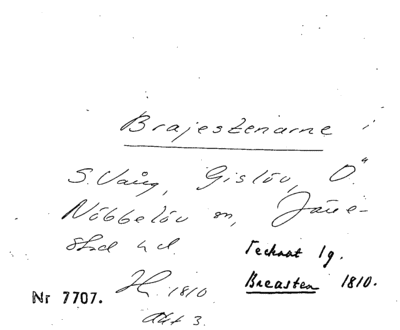 Brajestenarne i
S. Vång, Gislöv, Ö.
Nöbbelöv sn, Järre-
stad hd.
Tecknat 1g.
Breasten 1810.
Nr 7707.
H. 1810
Akt 3.